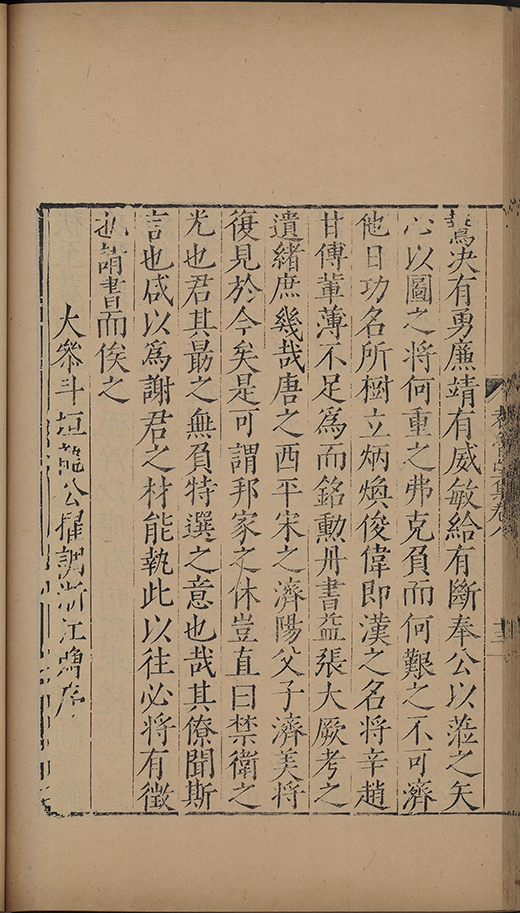 鷙決有勇廉靖有威敏給有斷奉公以蒞之矢
心以圖之將何重之弗克負而何艱之不可濟
他日功名所樹立炳煥俊偉即漢之名將辛趙
甘傅輩薄不足為而銘勳丹書益張大厥考之
遺緒庶幾哉唐之西平宋之濟陽父子濟美將
復見於今矣是可謂邦家之休豈直曰禁衛之
光也君其最之無負特選之意也哉其僚聞斯
言也咸以為謝君之材能執此以往必將有徵
也請書而俟之
大叅斗垣龍公擢調浙江